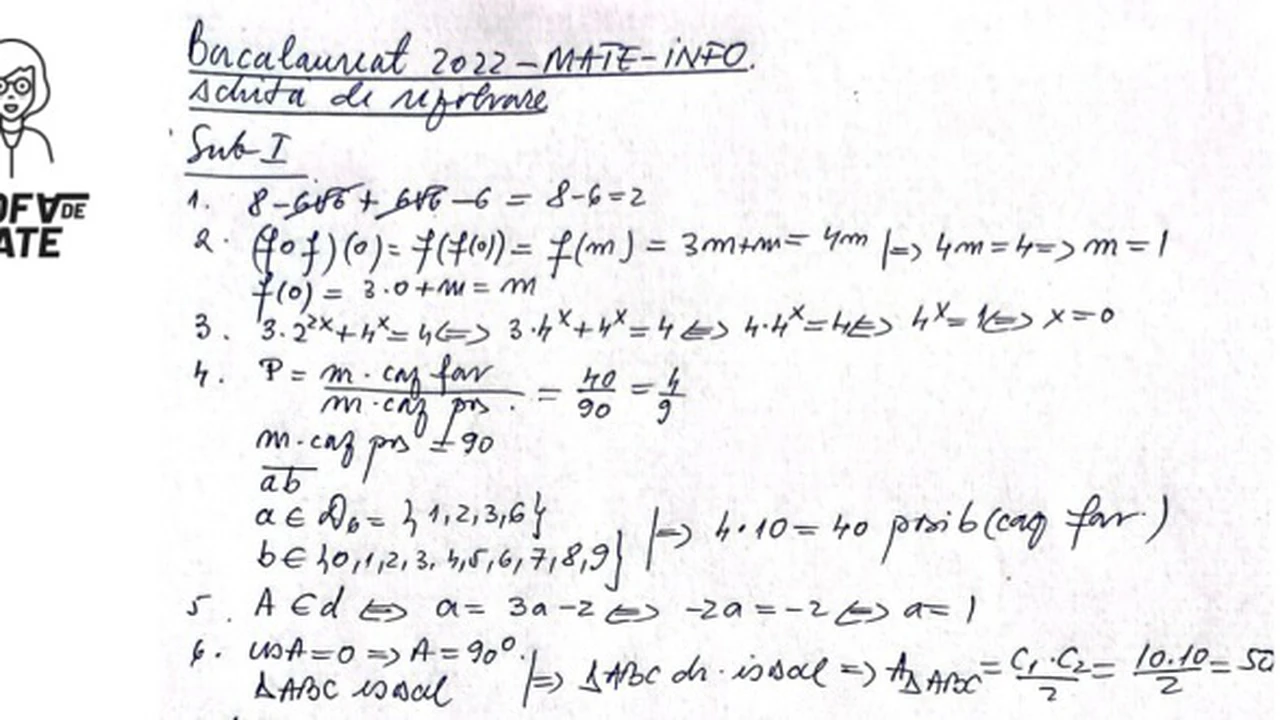 Bacalaureat 2022 – MATE-INFO.
schita de rezolvare
OF∀DE
ATE
Sub I
1. 8-6√6 + 6√6 -6 = 8-6=2
2. (f∘f)(0)= f(f(0))= f(m) = 3m+m= 4m |=> 4m=4=> m=1
f(0)= 3·0+m= m
3. 3·2^{2x}+4^x=4<=> 3·4^x+4^x=4<=> 4·4^x=4<=> 4^x=1<=> x=0
4. P = m·caz fav / m·caz pos. = 40/90 = 4/9
m·caz pos = 90
ab
a∈D₆= {1,2,3,6}
b∈{0,1,2,3,4,5,6,7,8,9} |=> 4·10=40 posib(caz fav.)
5. A∈d <=> a= 3a-2<=> -2a=-2<=> a=1
6. cosA=0 => A=90°.
ΔABC isoscel |=> ΔABC dr. isoscel => A_{ΔABC}= C₁·C₂/2 = 10·10/2 = 50